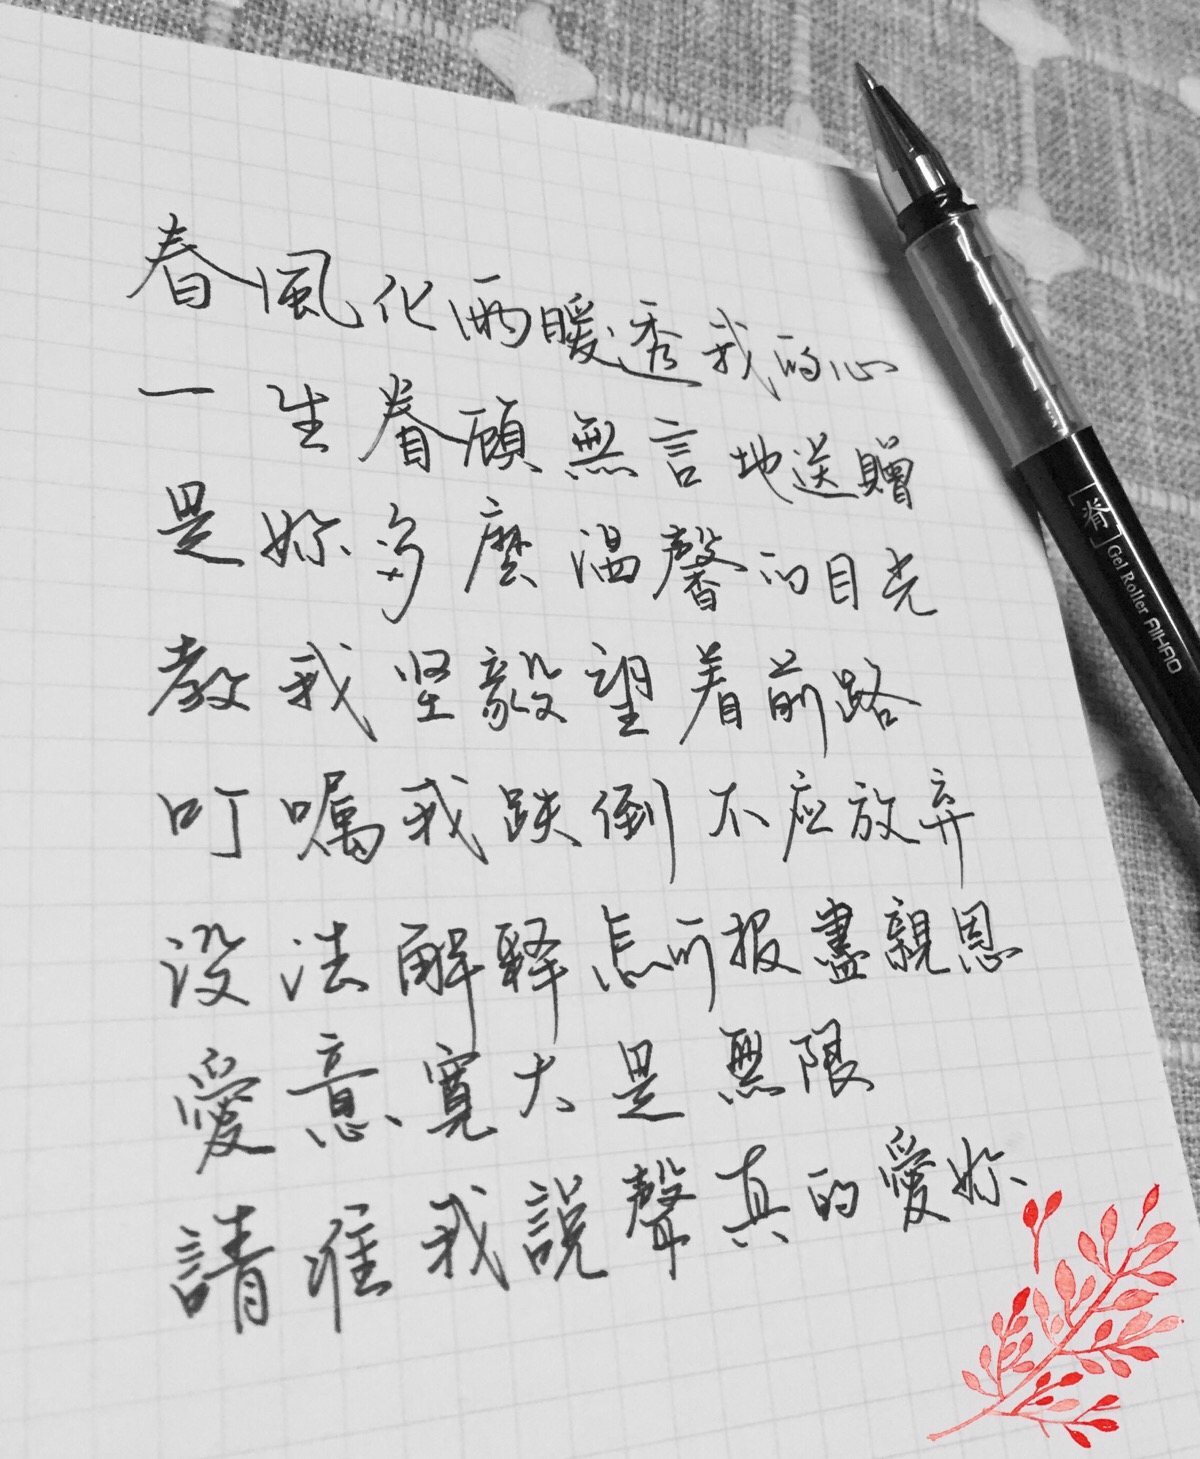 春風化雨暖透我的心
一生眷顧無言地送贈
是妳多麽温馨的目光
教我坚毅望着前路
叮嘱我跌倒不应放弃
没法解释怎可报盡親恩
愛意寬大是無限
請准我説聲真的愛妳
[眷] Gel Roller AIHAO